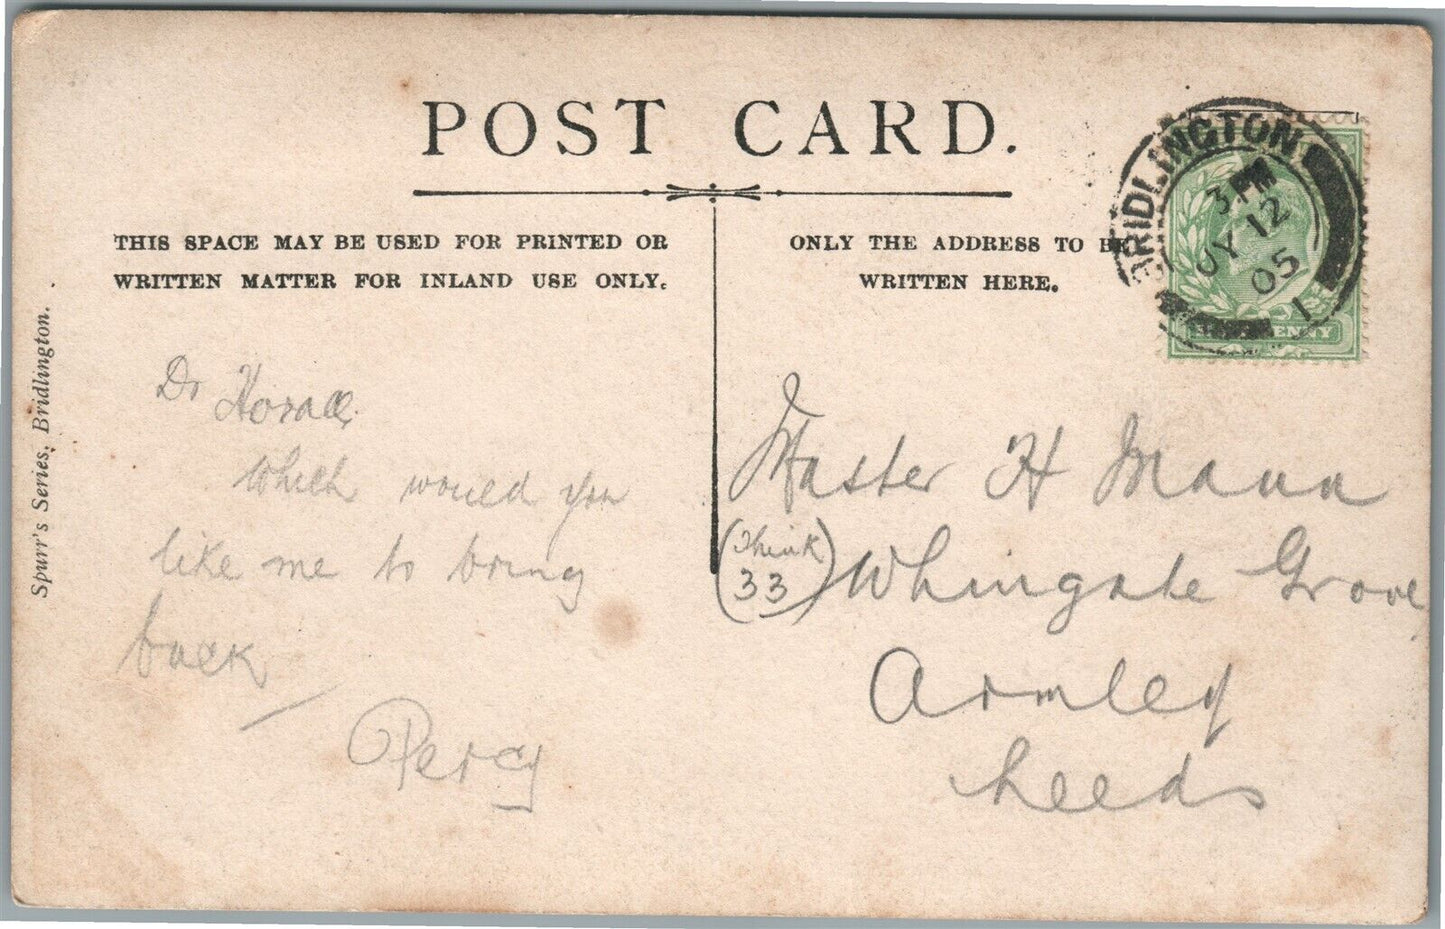 POST CARD.
THIS SPACE MAY BE USED FOR PRINTED OR
WRITTEN MATTER FOR INLAND USE ONLY.
ONLY THE ADDRESS TO BE
WRITTEN HERE.
BRIDLINGTON
3 PM
JY 12
05
1
PENNY
Spurr's Series, Bridlington.
Dr Horace
Which would you
like me to bring
back
Percy
Master H Mann
(Think
33) Whingate Grove
Armley
Leeds